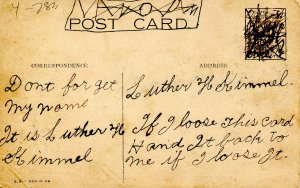 POST CARD
CORRESPONDENCE
ADDRESS
Dont for get
My name
It is Luther H
Himmel
Luther H Himmel.
If I loose this card
Hand It back to
me if I loose It.